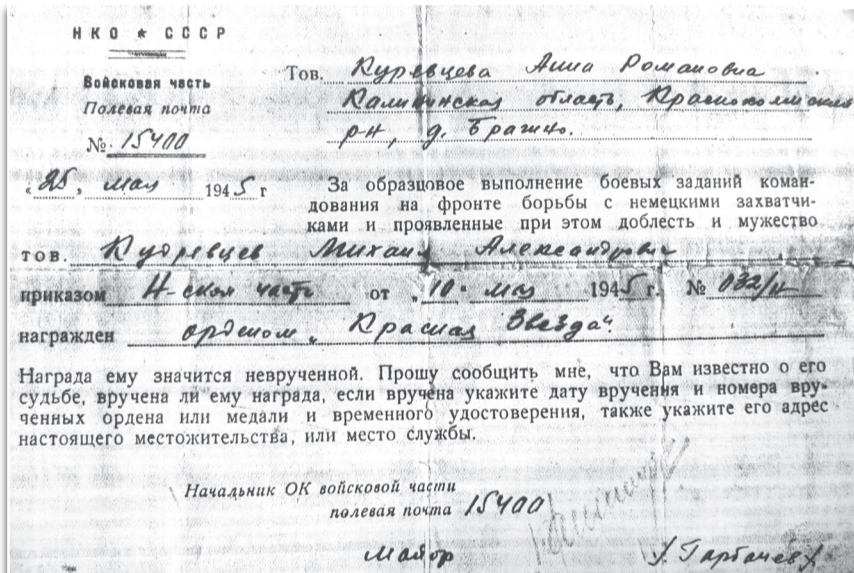 НКО ★ СССР
Войсковая часть
Полевая почта
№ 15400
Тов. Куревцева Анна Романовна
Калининская область, Краснохолмский
р-н, д. Бражно.
„25„ мая 1945 г
За образцовое выполнение боевых заданий коман-
дования на фронте борьбы с немецкими захватчи-
ками и проявленные при этом доблесть и мужество
тов. Кудревцев Михаил Александрович
приказом Н-ской части от „10" мая 1945 г. № 032/н
награжден орденом „Красная Звезда".
Награда ему значится неврученной. Прошу сообщить мне, что Вам известно о его
судьбе, вручена ли ему награда, если вручена укажите дату вручения и номера вру-
ченных ордена или медали и временного удостоверения, также укажите его адрес
настоящего местожительства, или место службы.
Начальник ОК войсковой части
полевая почта 15400
Майор /Горбачев/